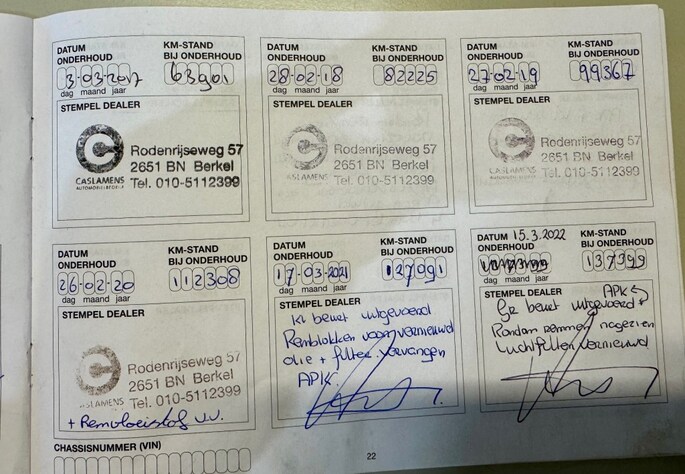 DATUM ONDERHOUD
KM-STAND BIJ ONDERHOUD
3-03-2017
63901
dag maand jaar
STEMPEL DEALER
CASLAMENS
Rodenrijseweg 57
2651 BN Berkel
Tel. 010-5112399
DATUM ONDERHOUD
KM-STAND BIJ ONDERHOUD
28-02-18
82225
dag maand jaar
STEMPEL DEALER
CASLAMENS
Rodenrijseweg 57
2651 BN Berkel
Tel. 010-5112399
DATUM ONDERHOUD
KM-STAND BIJ ONDERHOUD
27-02-19
99367
dag maand jaar
STEMPEL DEALER
CASLAMENS
Rodenrijseweg 57
2651 BN Berkel
Tel. 010-5112399
DATUM ONDERHOUD
KM-STAND BIJ ONDERHOUD
26-02-20
112308
dag maand jaar
STEMPEL DEALER
CASLAMENS
Rodenrijseweg 57
2651 BN Berkel
Tel. 010-5112399
+ Remvloeistof v.v.
DATUM ONDERHOUD
KM-STAND BIJ ONDERHOUD
17-03-2021
127091
dag maand jaar
STEMPEL DEALER
Kl beurt uitgevoerd
Remblokken voor vernieuwd
olie + filter vervangen
APK.
DATUM ONDERHOUD
15.3.2022
KM-STAND BIJ ONDERHOUD
137399
dag maand jaar
STEMPEL DEALER
APK
Gr beurt uitgevoerd
Rondom remmen nagezien
Luchtfilter vernieuwd
CHASSISNUMMER (VIN)
22